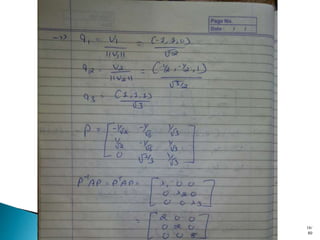 Page No.
Date : / /
→) q1 = V1/||V1|| = (-1, 1, 0)/√2
q2 = V2/||V2|| = (-½, -½, 1)/√3/2
q3 = (1, 1, 1)/√3
P = [ -1/√2 -1/√6 1/√3
1/√2 -1/√6 1/√3
0 √2/3 1/√3 ]
P⁻¹AP = PᵀAP = [ λ1 0 0
0 λ2 0
0 0 λ3 ]
= [ 2 0 0
0 2 0
0 0 8 ]